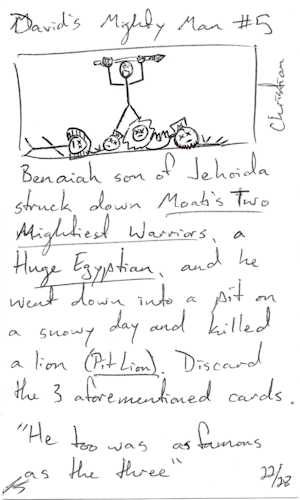 David's Mighty Man #5
Christian
Benaiah son of Jehoida
struck down Moab's Two
Mightiest Warriors, a
Huge Egyptian, and he
went down into a pit on
a snowy day and killed
a lion (Pit Lion). Discard
the 3 aforementioned cards.
"He too was as famous
as the three"
22/28